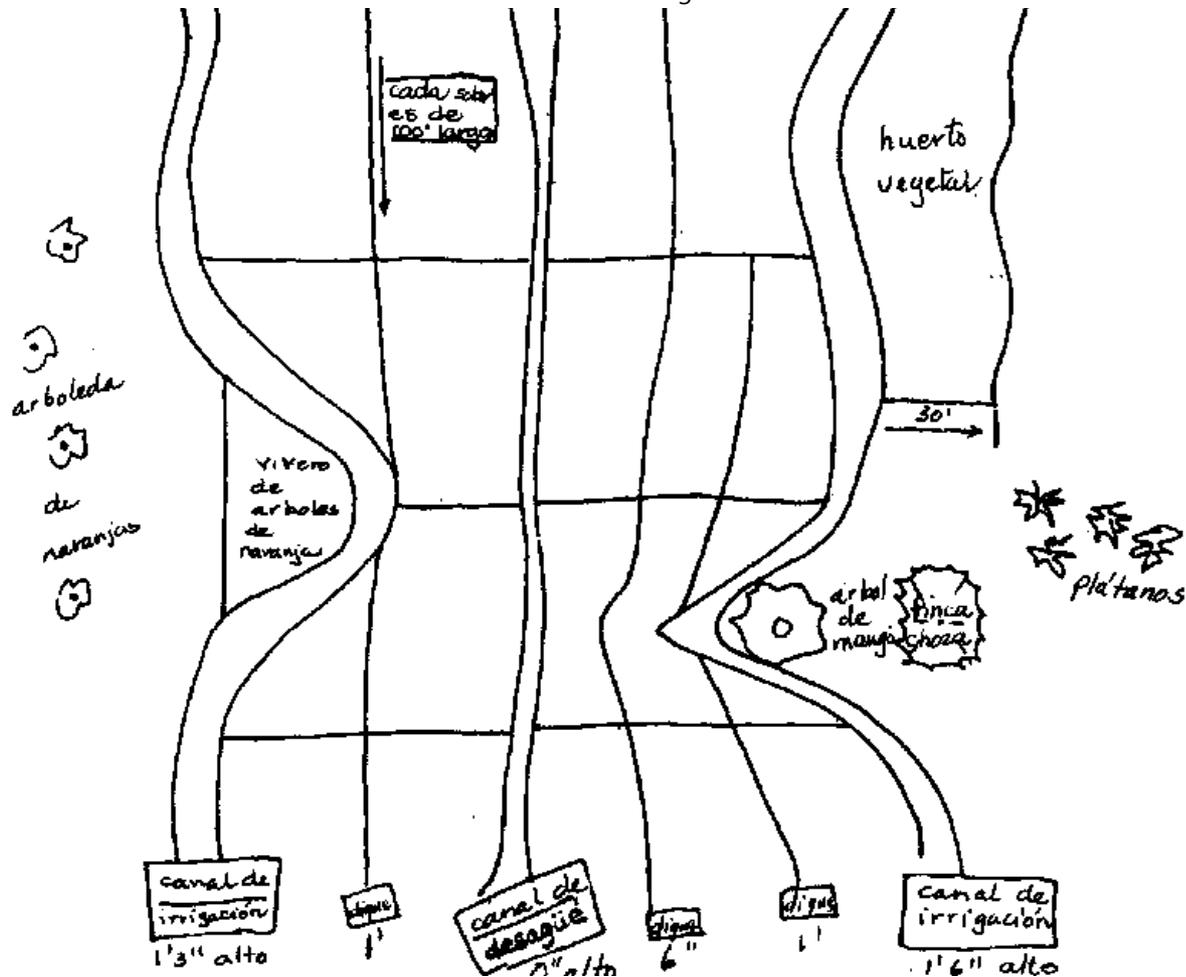 cada
es de
100' largo
huerto
vegetal
30'
arboleda
de
naranjas
vivero
de
arboles
de
naranja
plátanos
árbol
de
mango
finca
choza
canal de
irrigación
1'3" alto
dique
1'
canal de
desagüe
0" alto
dique
6"
dique
1'
canal de
irrigación
1'6" alto